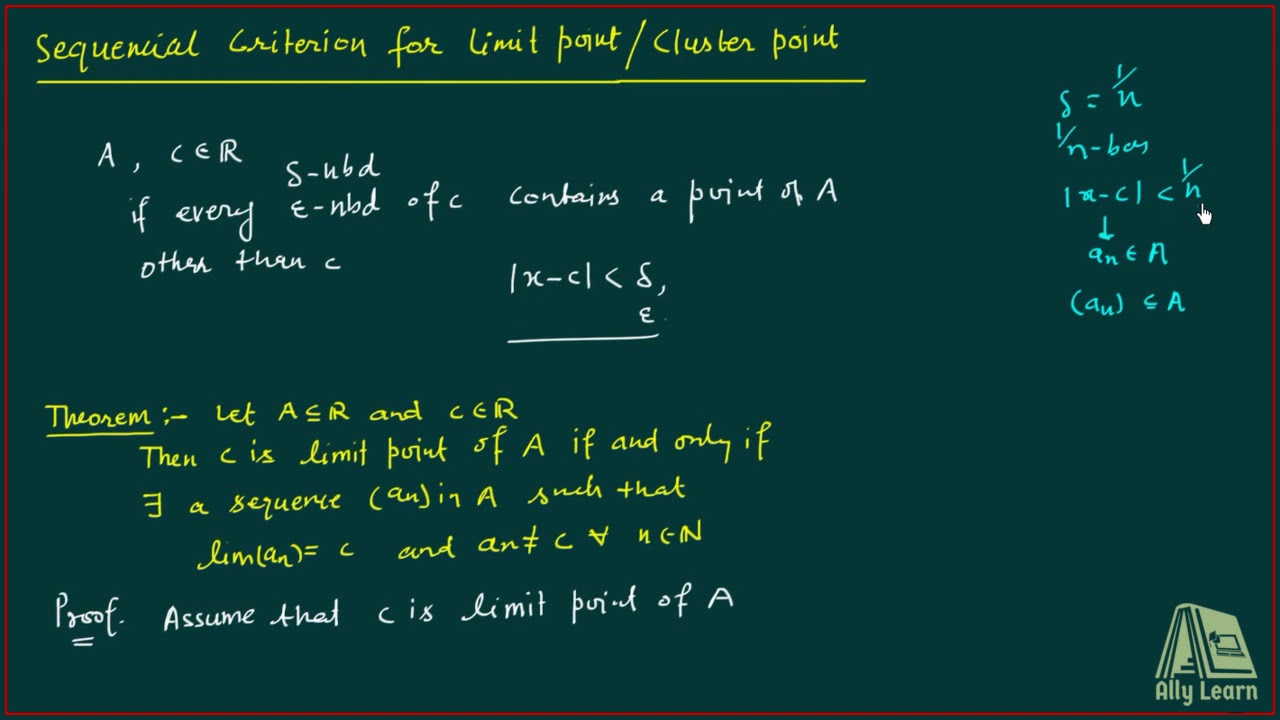 Sequencial Criterion for limit point/Cluster point
A , c ∈ ℝ
δ-nbd
if every ε-nbd of c contains a point of A
other than c
|x-c| < δ,
ε
δ = 1/n
1/n-
|x-c| < 1/n
↓
an ∈ A
(an) ⊆ A
Theorem :- Let A ⊆ ℝ and c ∈ ℝ
Then c is limit point of A if and only if
∃ a sequence (an) in A such that
lim(an) = c and an ≠ c ∀ n ∈ ℕ
Proof. Assume that c is limit point of A
Ally Learn